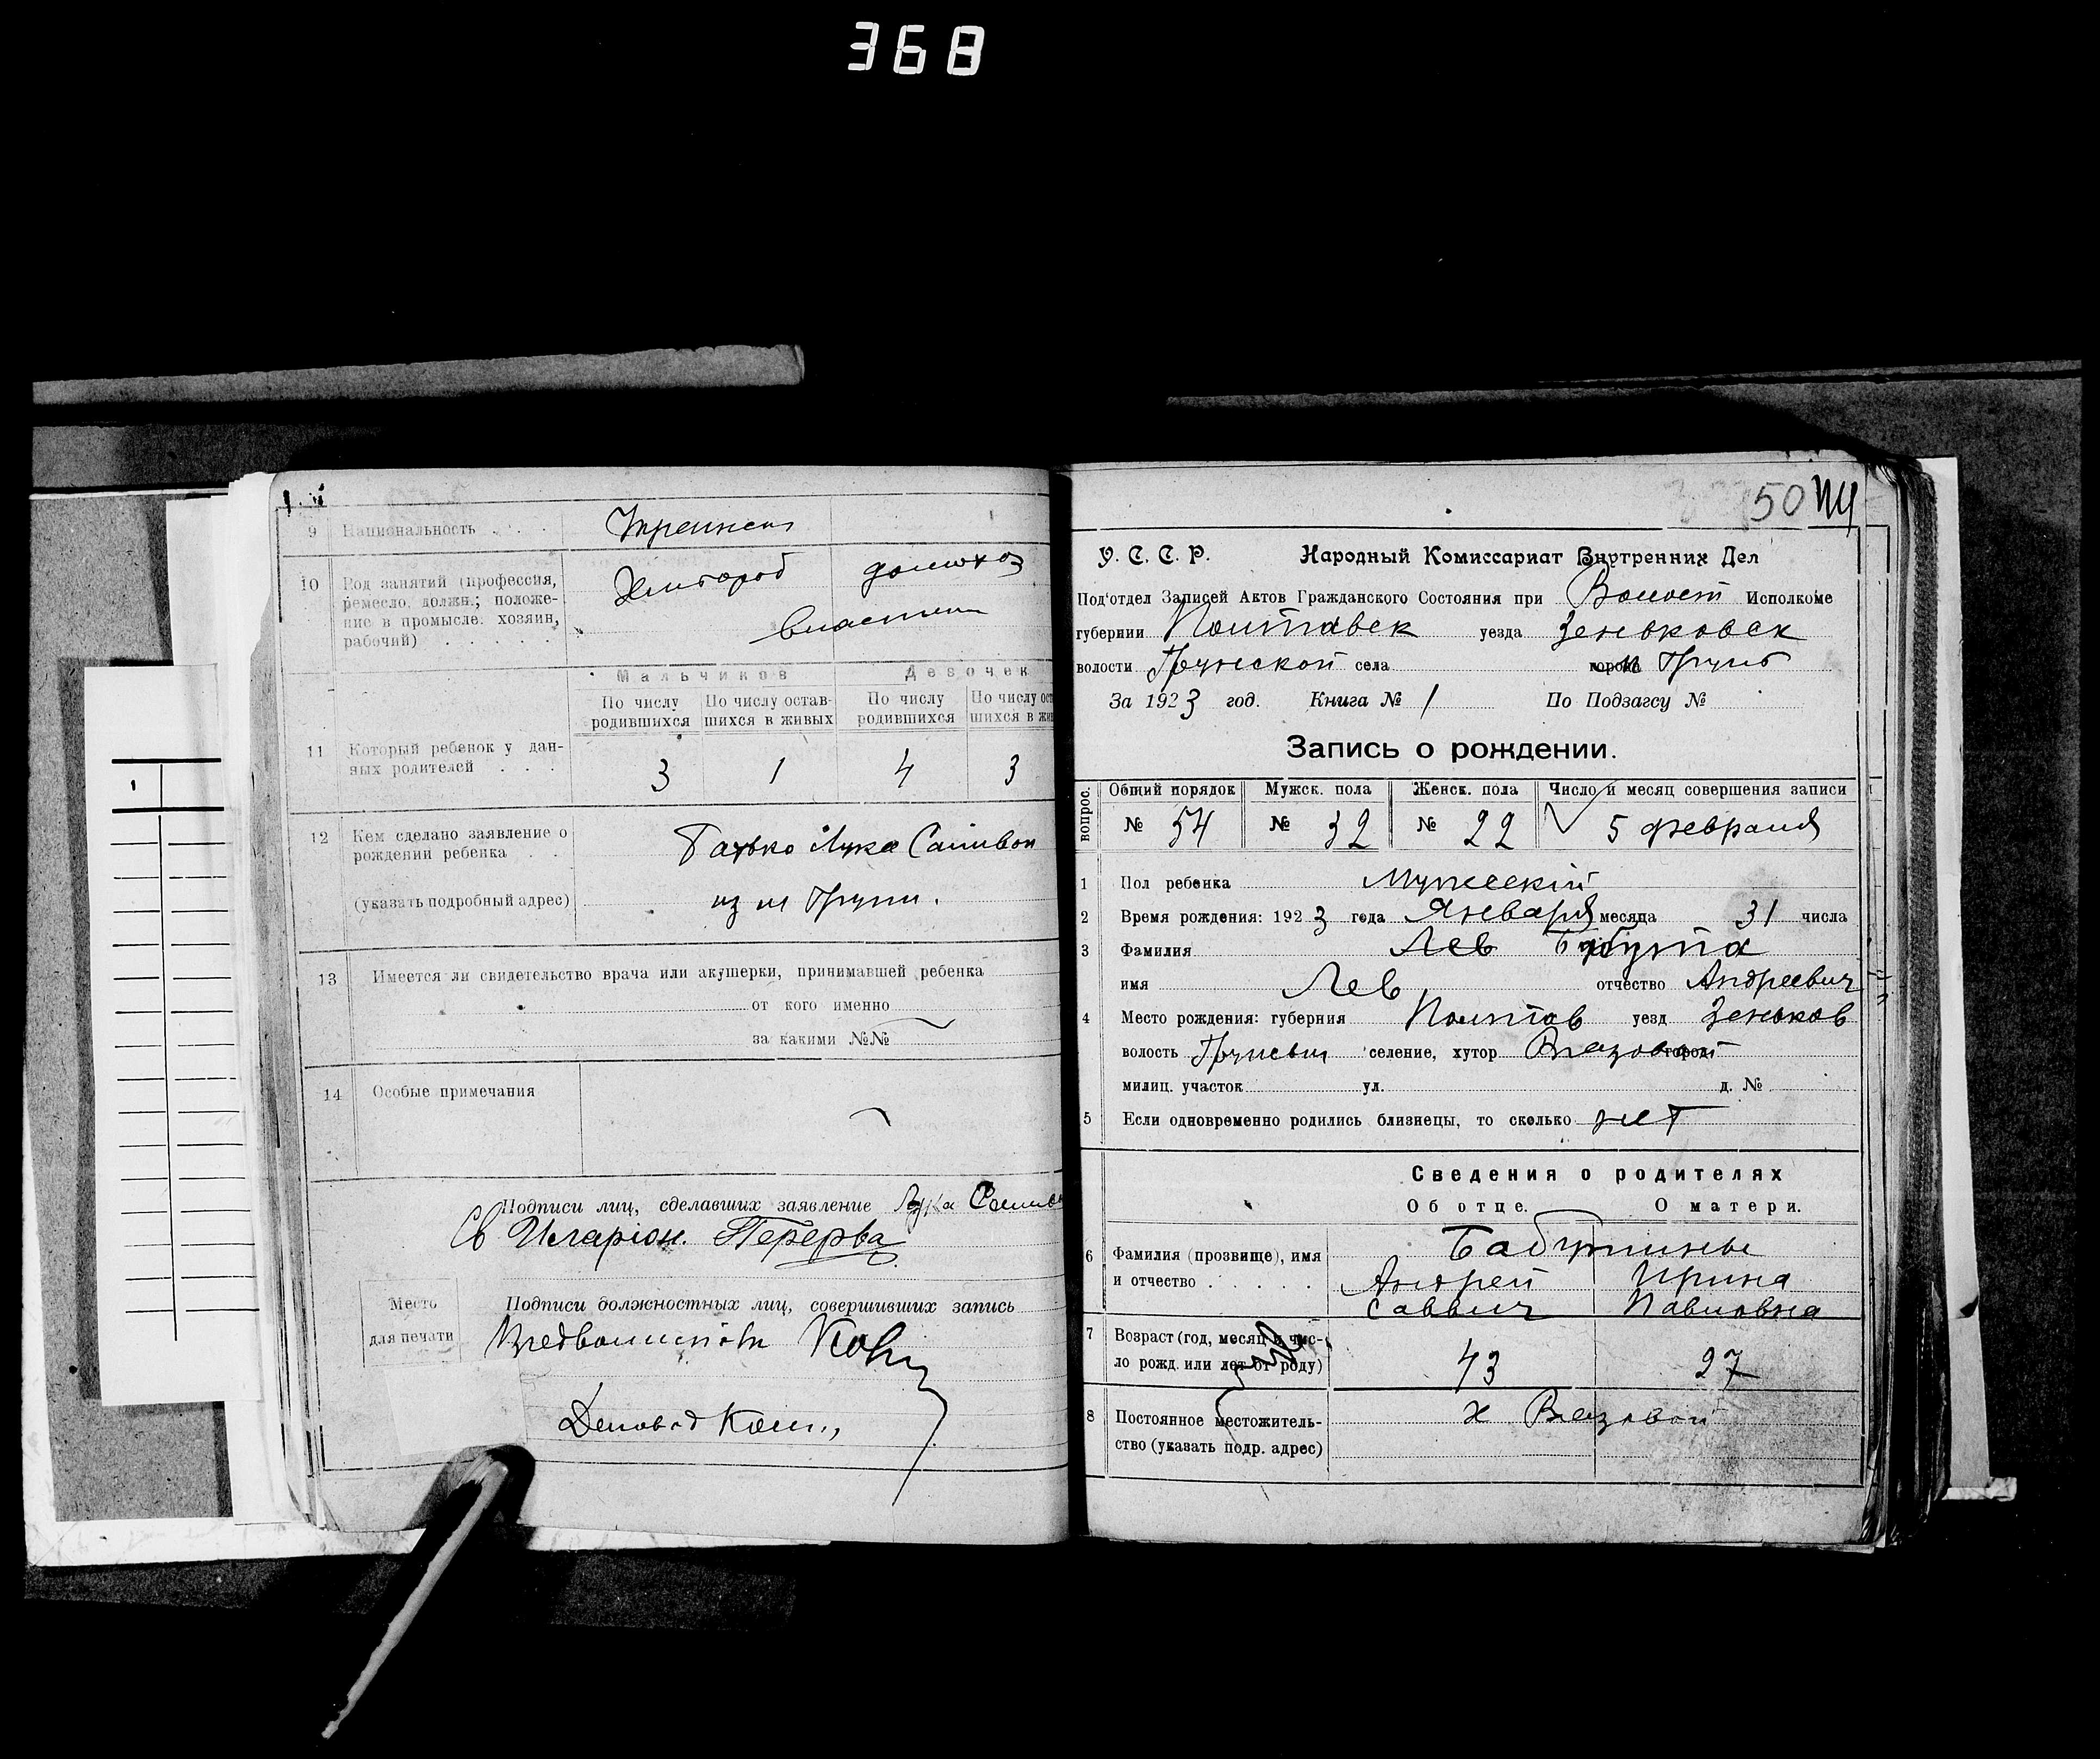 368
9 Национальность . . . Украинец
10 Род занятий (профессия, Хлибороб домохоз
ремесло, должн.; положе-
ние в промысле: хозяин, власний
рабочий) . . . .
Мальчиков Девочек
По числу По числу остав- По числу По числу ост
родившихся шихся в живых родившихся шихся в жив
11 Который ребенок у дан-
ных родителей . . . 3 1 4 3
12 Кем сделано заявление о Батько Лука
рождении ребенка . .
(указать подробный адрес) из м Груни.
13 Имеется ли свидетельство врача или акушерки, принимавшей ребенка
от кого именно
за какими №№
14 Особые примечания
Подписи лиц, сделавших заявление Лука
Св Иларіон. Перерва
Место Подписи должностных лиц, совершивших запись
для печати
Деловод
50
У. С. С. Р. Народный Комиссариат Внутренних Дел
Под'отдел Записей Актов Гражданского Состояния при Волост Исполкоме
губернии Полтавск уезда Зеньковск
волости Грунской села города м Грунь
За 1923 год. Книга № 1 По Подзагсу №
Запись о рождении.
вопрос. Общий порядок Мужск. пола Женск. пола Число и месяц совершения записи
№ 54 № 32 № 22 5 февраля
1 Пол ребенка Мужескій
2 Время рождения: 1923 года Января месяца 31 числа
3 Фамилия Лев Бабута
имя Лев отчество Андреевич
4 Место рождения: губерния Полтав уезд Зеньков
волость селение, хутор Вязовой город
милиц. участок ул. д. №
5 Если одновременно родились близнецы, то сколько нет
Сведения о родителях
Об отце. О матери.
6 Фамилия (прозвище), имя Бабутины
и отчество . . . . . Андрей Ирина
Саввич Павловна
7 Возраст (год, месяц и чис-
ло рожд. или лет от роду) 43 27
8 Постоянное местожитель- х Вязовой
ство (указать подр. адрес)